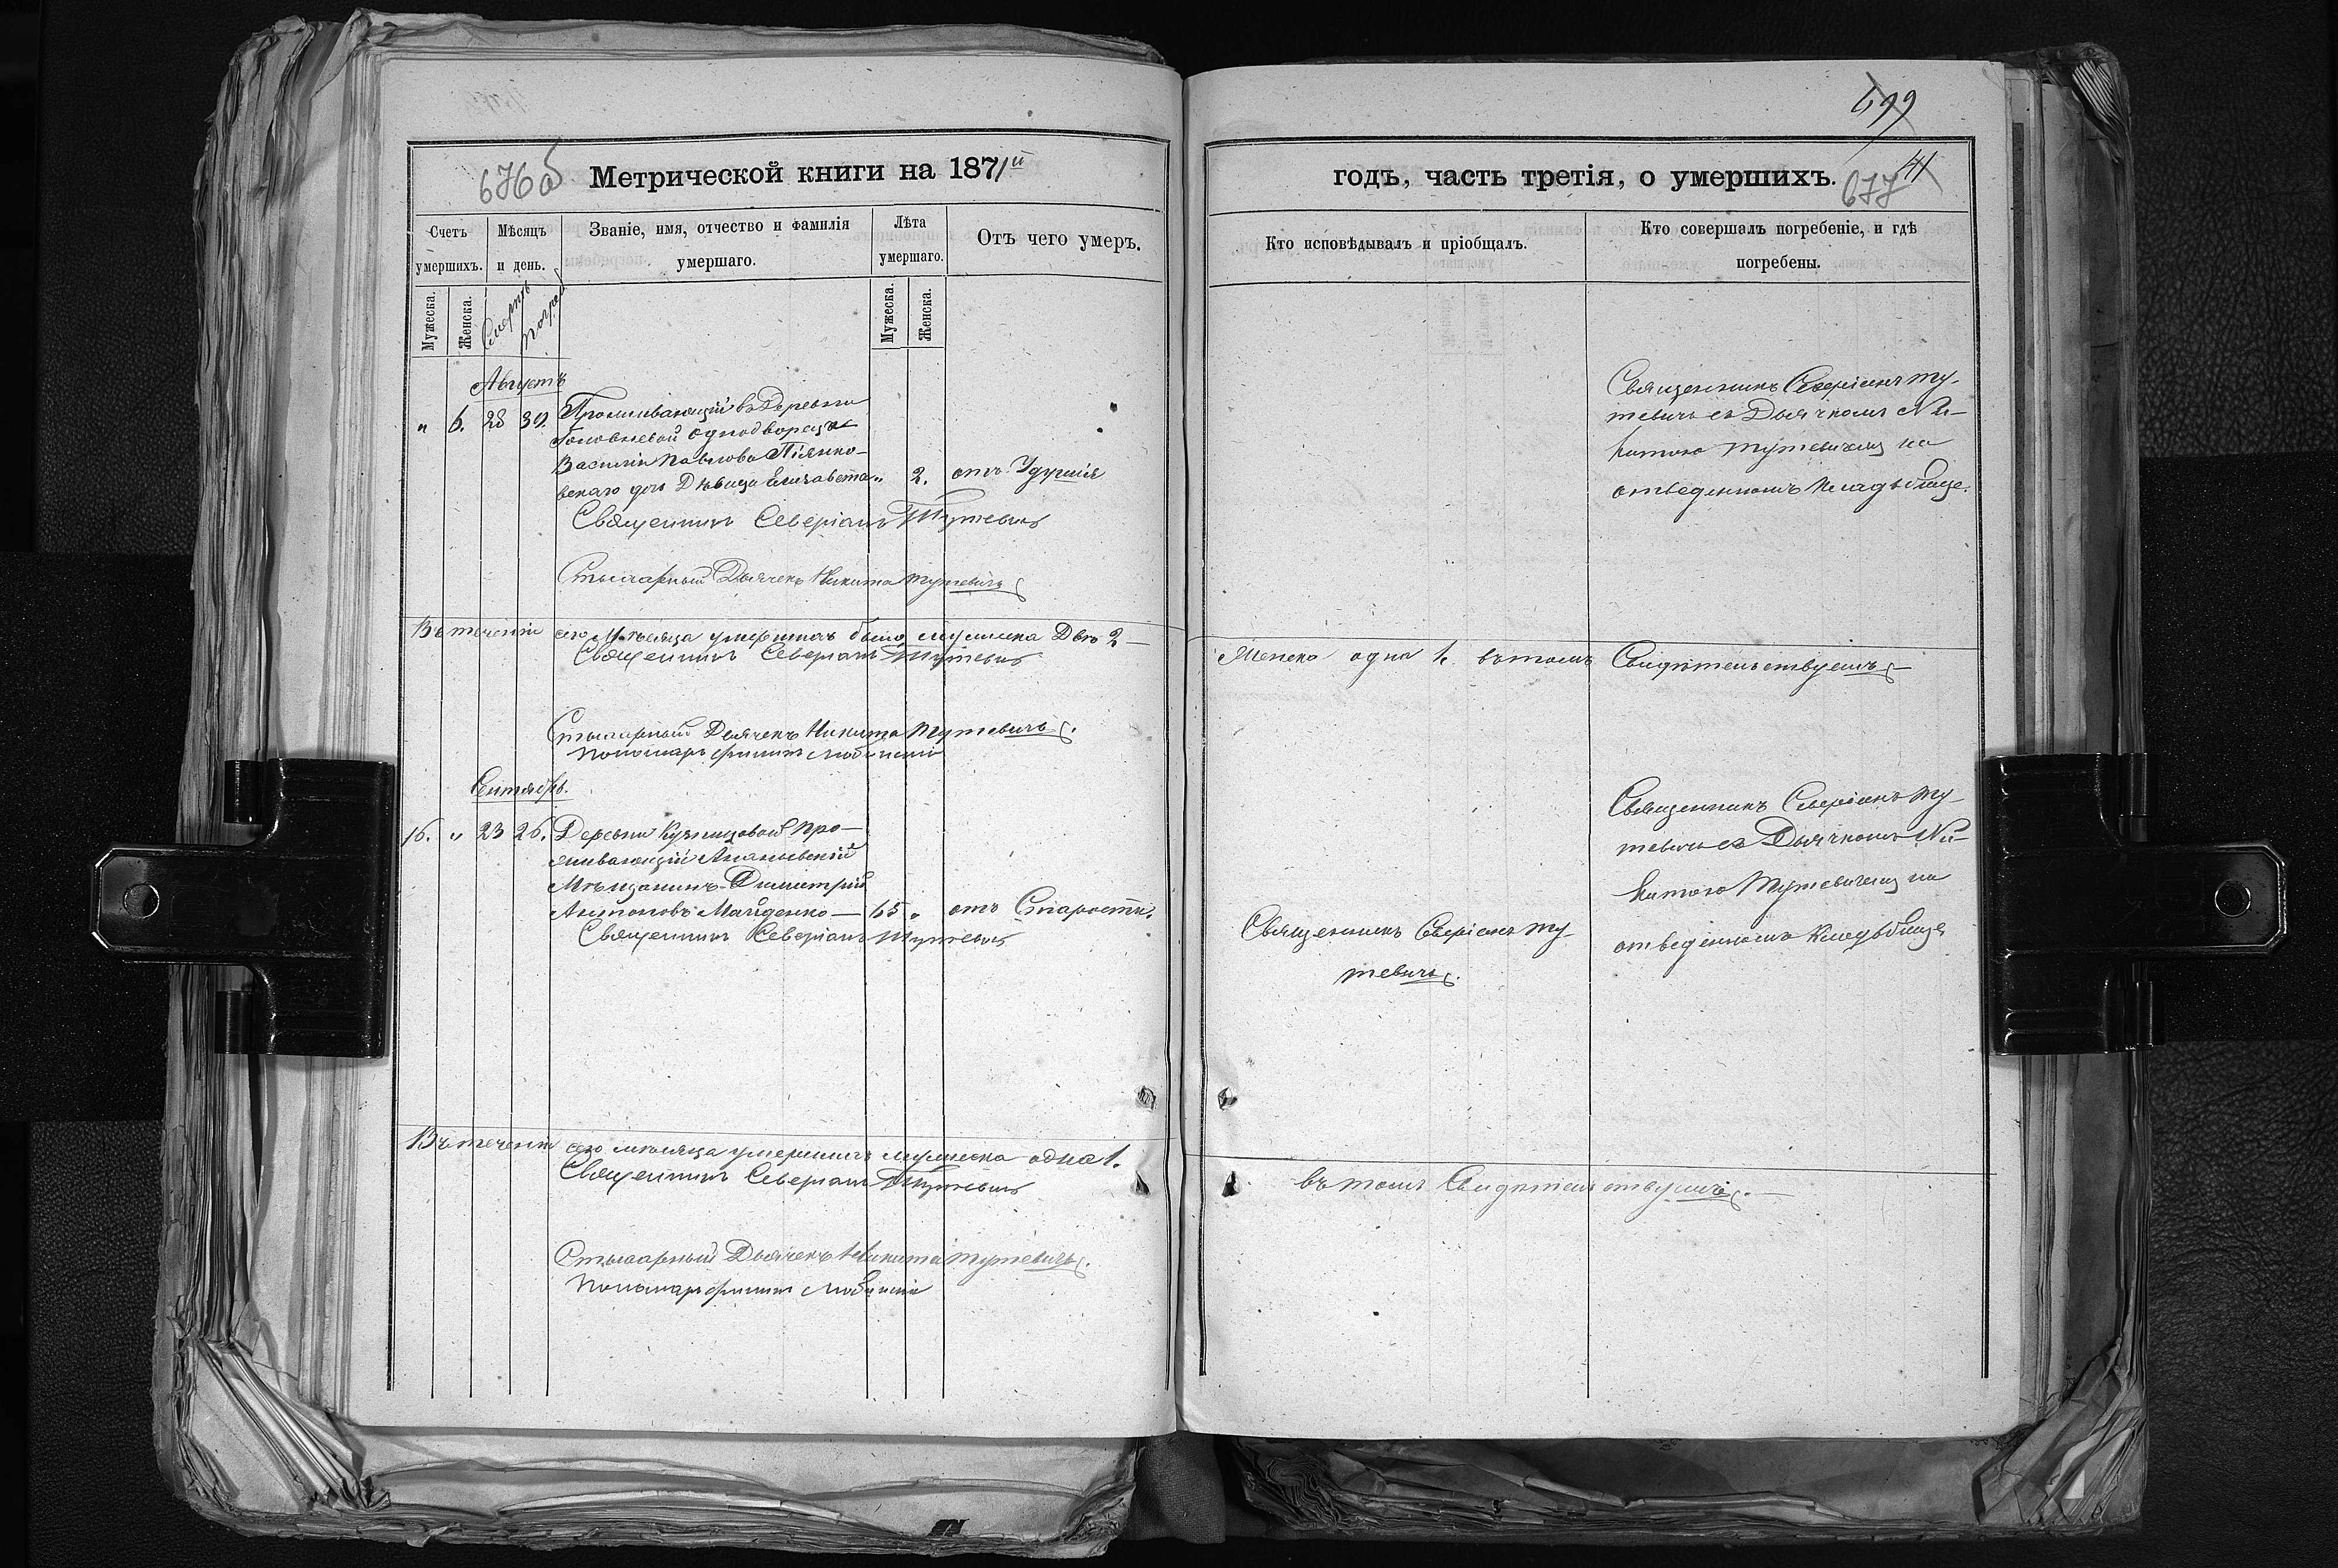 676об
Метрической книги на 1871й
Счетъ умершихъ.
Мѣсяцъ и день.
Званіе, имя, отчество и фамилія умершаго.
Лѣта умершаго.
Отъ чего умеръ.
Мужеска.
Женска.
Смерти
Погреб
Мужеска.
Женска.
Августъ
" 6. 28 30. Проживающій въ Деревни
Головневой однодворца
Василія Павлова Пѣянко-
вскаго дочь Дѣвица Елисавета " 2. отъ Удушія
Священникъ Северіанъ Тутевичъ
Стихарный Дьячекъ Никита Тутевичъ
Въ теченіи сего Мѣсяца умершихъ было мужеска Два 2
Священникъ Северіанъ Тутевичъ
Стихарный Дьячекъ Никита Тутевичъ.
Пономарь Филипъ
Сентябрь.
16. " 23 26. Деревни Кузнецовой про-
живающій Ананьевскій
Мѣщанинъ Димитрій
Антоновъ Майденко 65 " отъ Старости.
Священникъ Северіанъ Тутевичъ
Въ теченіи сего мѣсяца умершихъ мужеска одна 1.
Священникъ Северіанъ Тутевичъ
Стихарный Дьячекъ Никита Тутевичъ.
Пономарь Филипъ
699
41
677
годъ, часть третія, о умершихъ.
Кто исповѣдывалъ и пріобщалъ.
Кто совершалъ погребеніе, и гдѣ
погребены.
Священникъ Северіанъ Ту-
тевичъ съ Дьячкомъ Ни-
китою Тутевичемъ на
отведенномъ Кладъбище.
Женска одна 1. въ томъ Свидѣтельствуемъ
Священникъ Северіанъ Ту-
тевичъ съ Дьячкомъ Ни-
китою Тутевичемъ на
отведенномъ Кладъбище
Священникъ Северіанъ Ту-
тевичъ.
въ томъ Свидѣтельствуемъ.